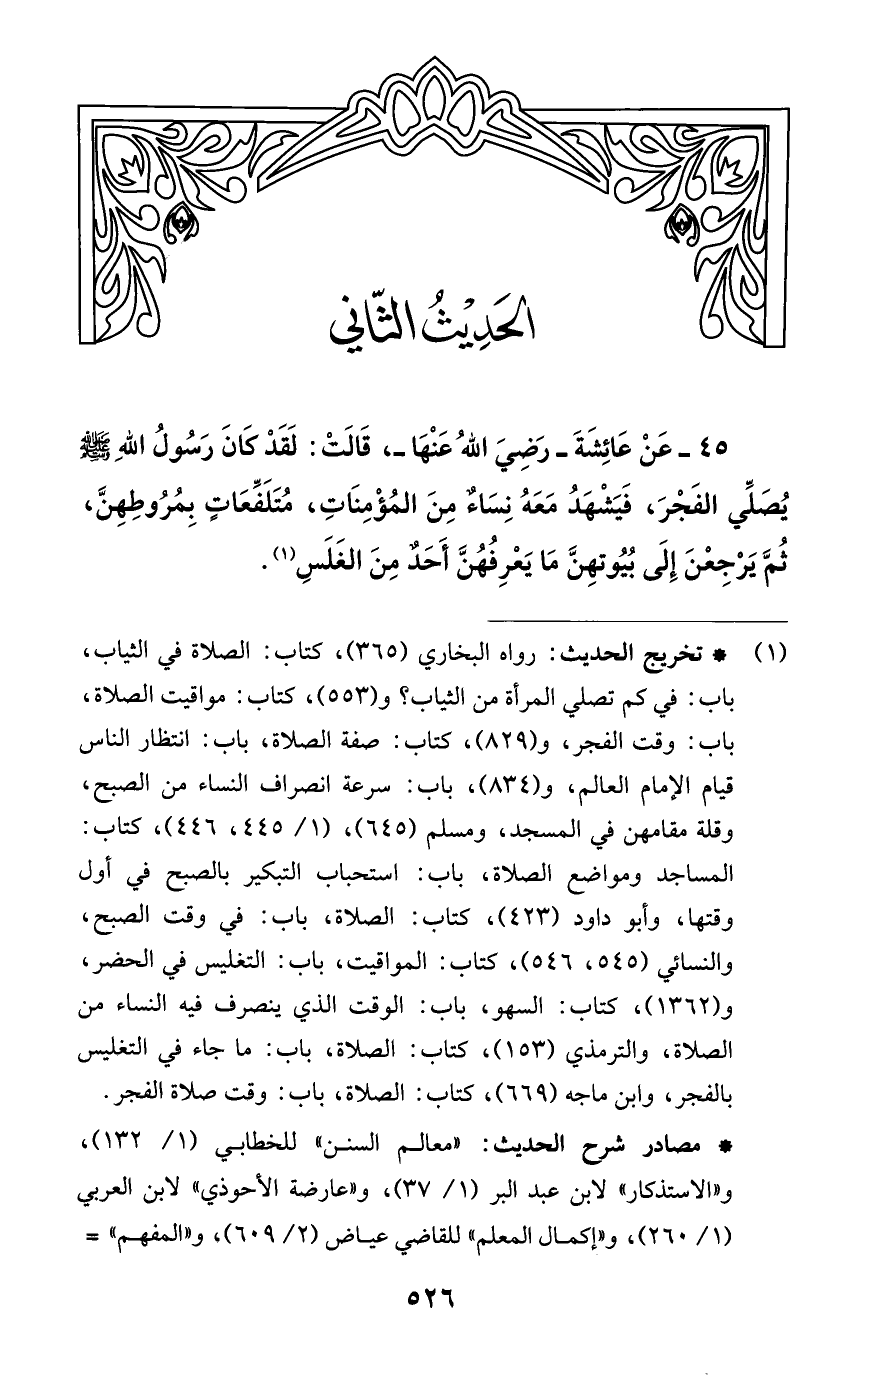 الحَدِيثُ الثَّانِي
٤٥ - عَنْ عَائِشَةَ - رَضِيَ اللهُ عَنْهَا -، قَالَتْ: لَقَدْ كَانَ رَسُولُ اللهِ ﷺ
يُصَلِّي الفَجْرَ، فَيَشْهَدُ مَعَهُ نِسَاءٌ مِنَ المُؤْمِنَاتِ، مُتَلَفِّعَاتٍ بِمُرُوطِهِنَّ،
ثُمَّ يَرْجِعْنَ إِلَى بُيُوتهِنَّ مَا يَعْرِفُهُنَّ أَحَدٌ مِنَ الغَلَسِ(١).
(١) * تخريج الحديث: رواه البخاري (٣٦٥)، كتاب: الصلاة في الثياب،
باب: في كم تصلي المرأة من الثياب؟ و(٥٥٣)، كتاب: مواقيت الصلاة،
باب: وقت الفجر، و(٨٢٩)، كتاب: صفة الصلاة، باب: انتظار الناس
قيام الإمام العالم، و(٨٣٤)، باب: سرعة انصراف النساء من الصبح،
وقلة مقامهن في المسجد، ومسلم (٦٤٥)، (١/ ٤٤٥، ٤٤٦)، كتاب:
المساجد ومواضع الصلاة، باب: استحباب التبكير بالصبح في أول
وقتها، وأبو داود (٤٢٣)، كتاب: الصلاة، باب: في وقت الصبح،
والنسائي (٥٤٥، ٥٤٦)، كتاب: المواقيت، باب: التغليس في الحضر،
و(١٣٦٢)، كتاب: السهو، باب: الوقت الذي ينصرف فيه النساء من
الصلاة، والترمذي (١٥٣)، كتاب: الصلاة، باب: ما جاء في التغليس
بالفجر، وابن ماجه (٦٦٩)، كتاب: الصلاة، باب: وقت صلاة الفجر.
* مصادر شرح الحديث: «معالم السنن» للخطابي (١/ ١٣٢)،
و«الاستذكار» لابن عبد البر (١/ ٣٧)، و«عارضة الأحوذي» لابن العربي
(١/ ٢٦٠)، و«إكمال المعلم» للقاضي عياض (٢/ ٦٠٩)، و«المفهم» =
٥٢٦